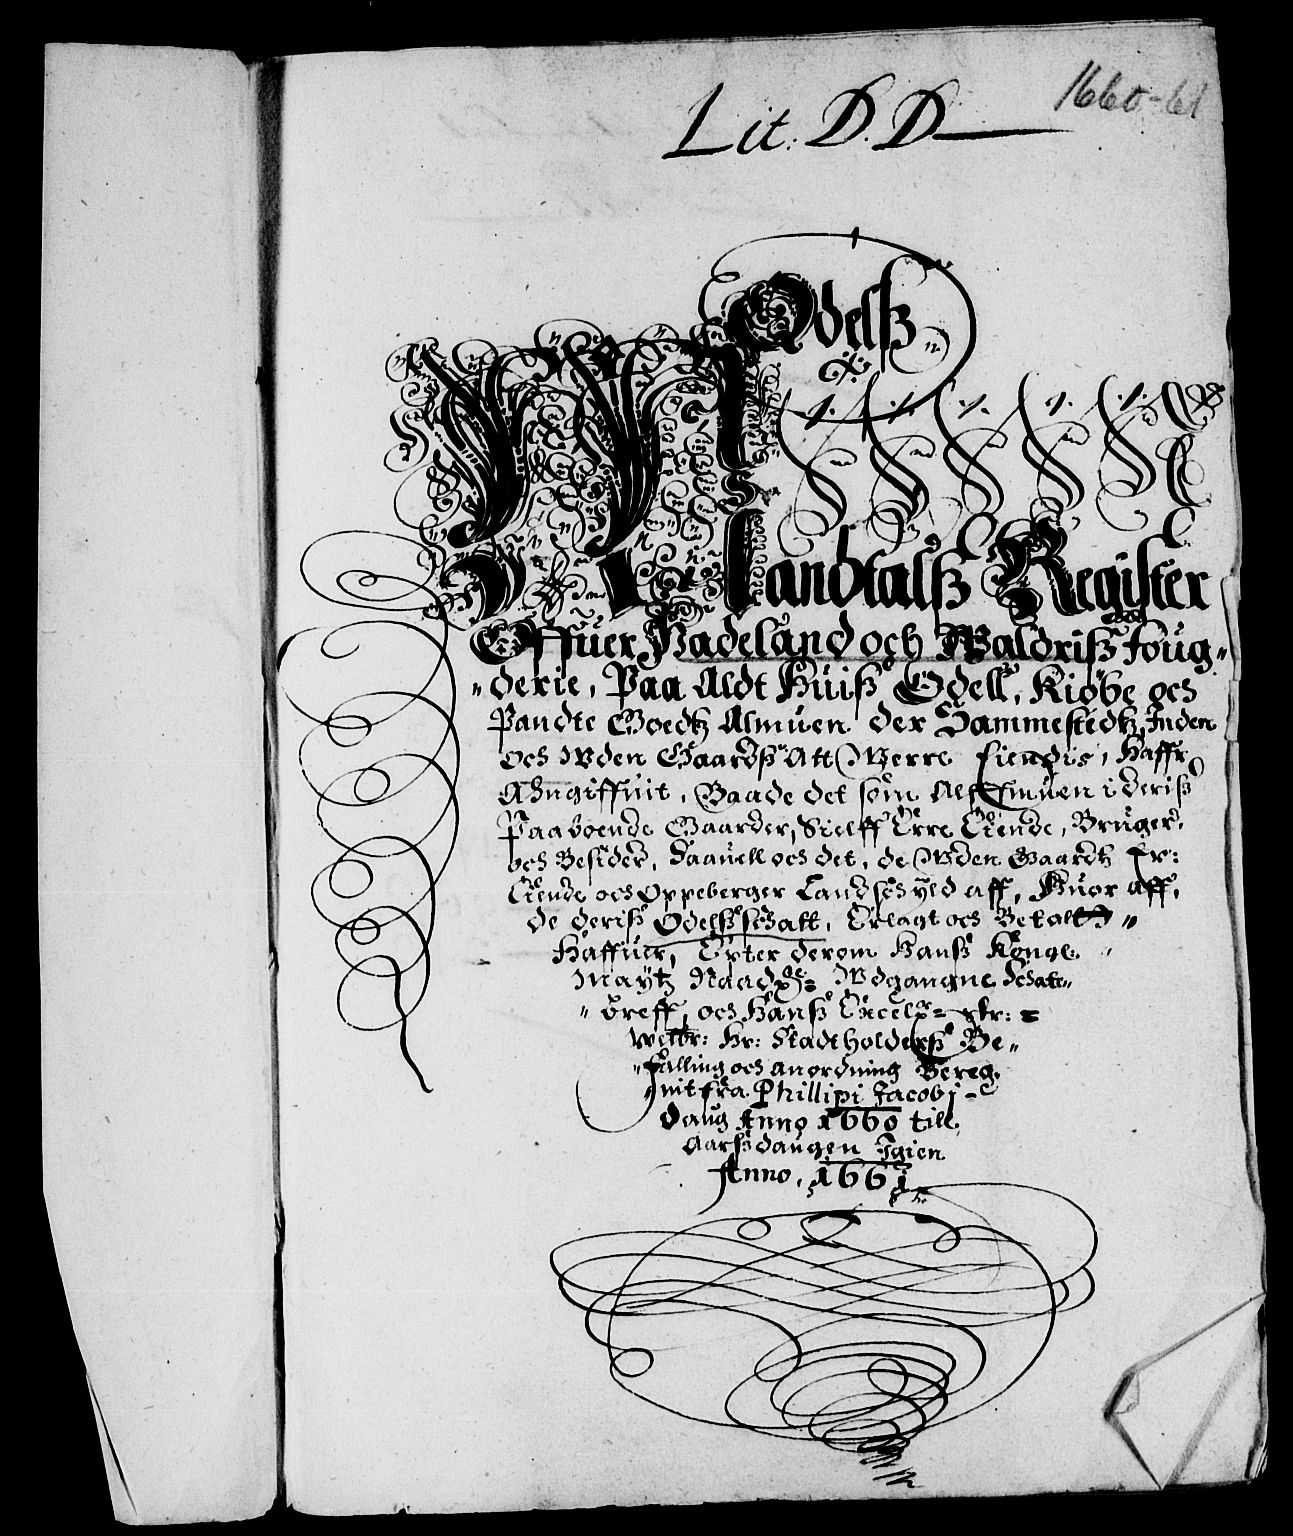 1660-61
Lit. D. D
Odelsz
Mandtalsz Register
Offuer Hadeland och Waldrisz foug-
derie, Paa Aldt Huisz Odell, Kiøbe och
Pandte Goedtz Almuen der Sammestedtz, Inden
och Wden Gaardsz Att Werre Eiendis, Haffr
Angiffuit, Baade det som Allmuen i derisz
Paaboende Gaarder, Sielff Erre Eiende, Bruger
och Besider, Saauell och det, de Wden Gaardtz Er:
Eiende och Oppeberger Landschyld aff, Huor aff,
de derisz Odelsz schatt, Erlagt och Betalt
Haffuer, Epter derom Hansz Konge
Maÿtz Naad Wdgangne Schate
breff, och Hansz Excel
Welbr: Hr: Stadtholdersz Be-
falling och anordning Bereg
nit fra Phillipi Jacobj
daug Anno 1660 till
Aarsz daugen Igien
Anno, 1661